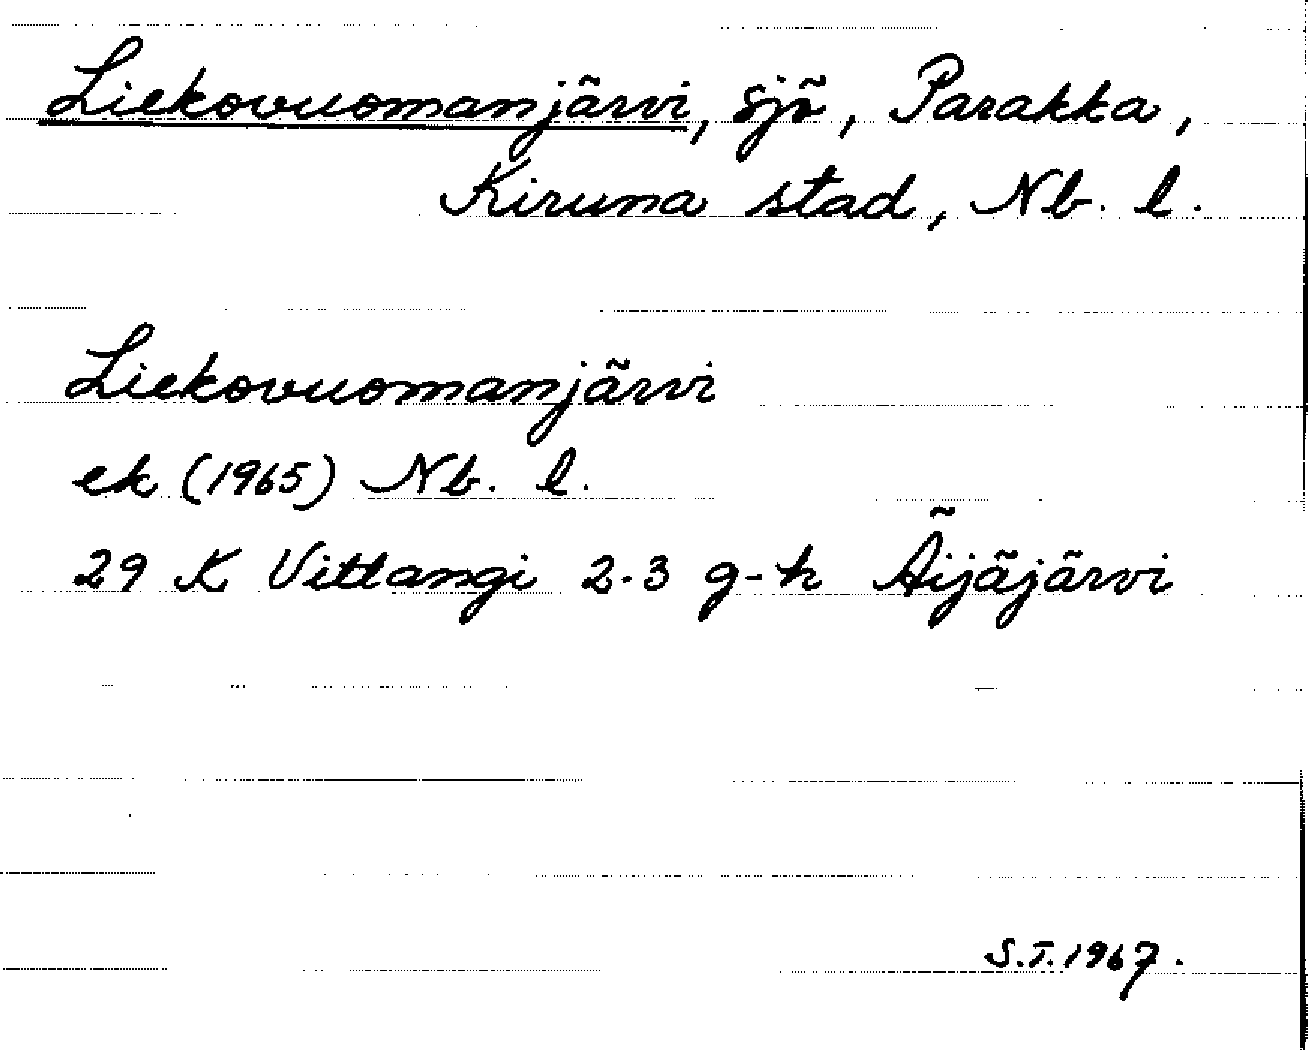 Liekovuomanjärvi, sjö, Parakka,
Kiruna stad, Nb. l.
Liekovuomanjärvi
ek (1965) Nb. l.
29 K Vittangi 2-3 g-h Äijäjärvi
S.T. 1967.